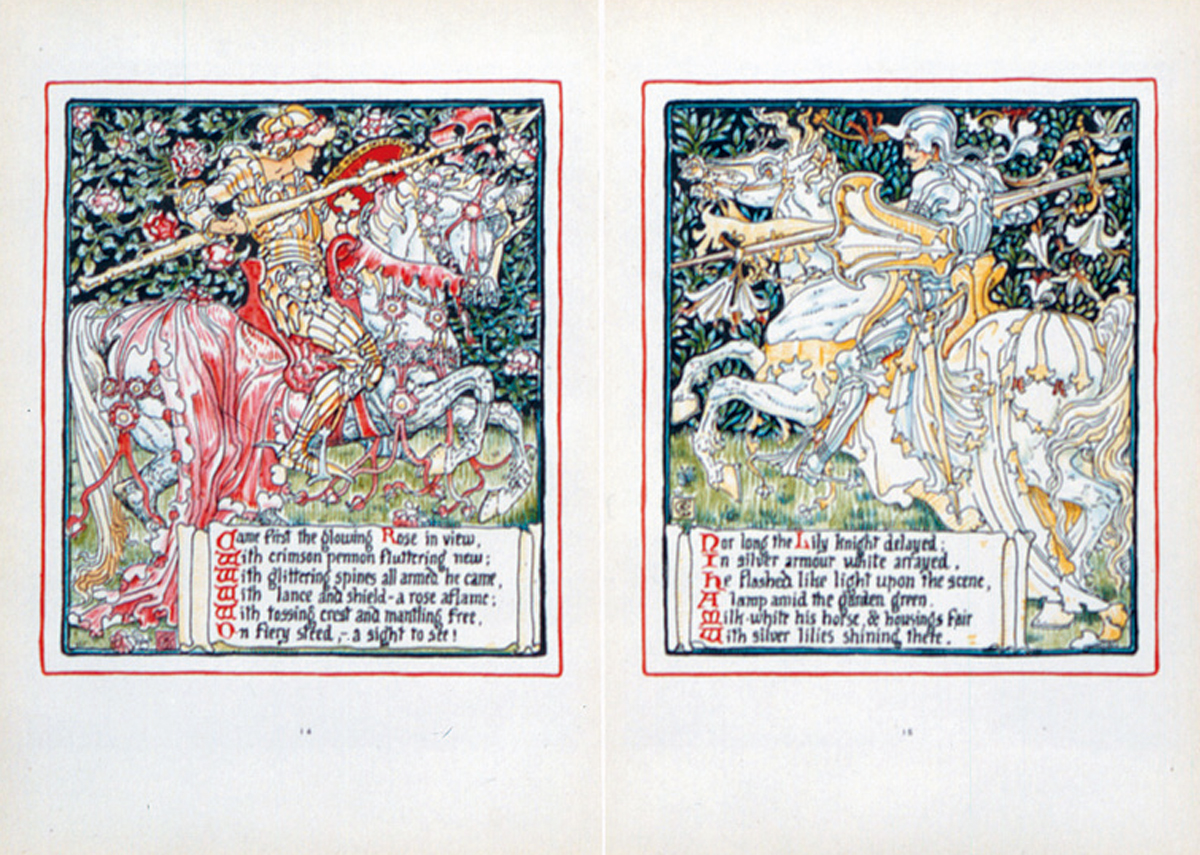 Came first the glowing Rose in view,
With crimson pennon fluttering new;
With glittering spines all armed he came,
With lance and shield - a rose aflame;
With tossing crest and mantling free,
On fiery steed, - a sight to see!
14
Nor long the Lily knight delayed;
In silver armour white arrayed,
He flashed like light upon the scene,
A lamp amid the garden green.
Milk-white his horse, & housings fair
With silver lilies shining there.
15